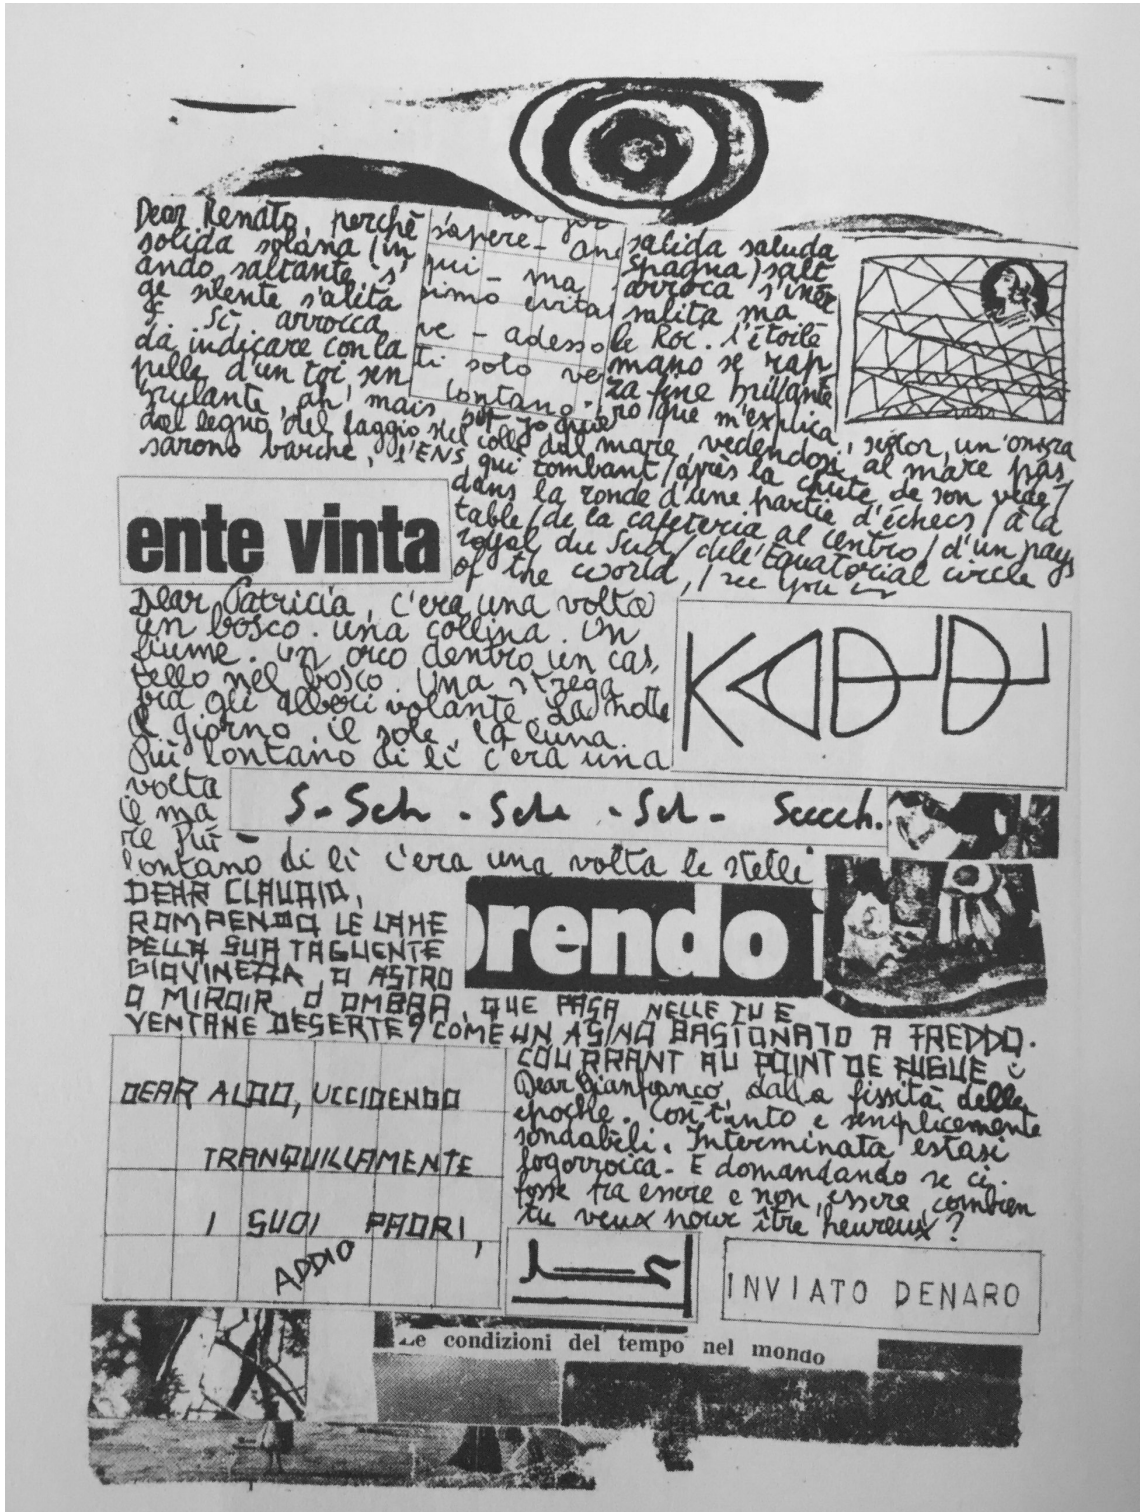 Dear Renato, perchè
solida solaria (in
ando saltante s'
ge silente s'alita
si arrocca
da indicare con la
pelle d'un toi, sen
ah! mais
sapere - an
qui - ma
simo evita
ve - adesso
ti solo ve
lontano.
salida saluda
Spagna) salt
arroca s'iner
salita ma
le Roc. l'étoile
mano se rap
za fine brillante
jo que ro que m'explica, señor, un'ombra
dal legno del faggio nel colle dal mare, vedendosi al mare pas
sarono barche, l'ENS qui tombant / après la chute de son vide /
dans la ronde d'une partie d'échecs / à la
table / de la cafeteria al centro / d'un pays
royal du Sud / dell'Equatorial circle
of the world, I see you in
ente vinta
Dear Patricia, c'era una volta
un bosco. una collina. Un
fiume. un orco dentro un cas,
tello nel bosco. Una strega
fra gli alberi volante. La notte
il giorno. il sole. la luna.
Più lontano di lì c'era una
volta
il ma
re più
lontano di lì c'era una volta le stelle
KADJDJ
S - Sch - Sch - Sch - Scccch.
DEAR CLAUDIO,
ROMPENDO LE LAME
DELLA SUA TAGLIENTE
GIOVINEZZA, O ASTRO
O MIROIR, O OMBRA, QUE PASA NELLE TUE
VENTANE DESERTE? COME UN ASINO BASTONATO A FREDDO.
COURRANT AU POINT DE FUGUE
rendo
DEAR ALDO, UCCIDENDO
TRANQUILLAMENTE
I SUOI PADRI,
ADDIO
Dear Gianfranco, dalla fissità delle
epoche. Così tinto e semplicemente
sondabili. Interminata estasi
logorroica. E domandando se ci
fosse tra essere e non essere, combien
tu veux pour être heureux?
INVIATO DENARO
Le condizioni del tempo nel mondo